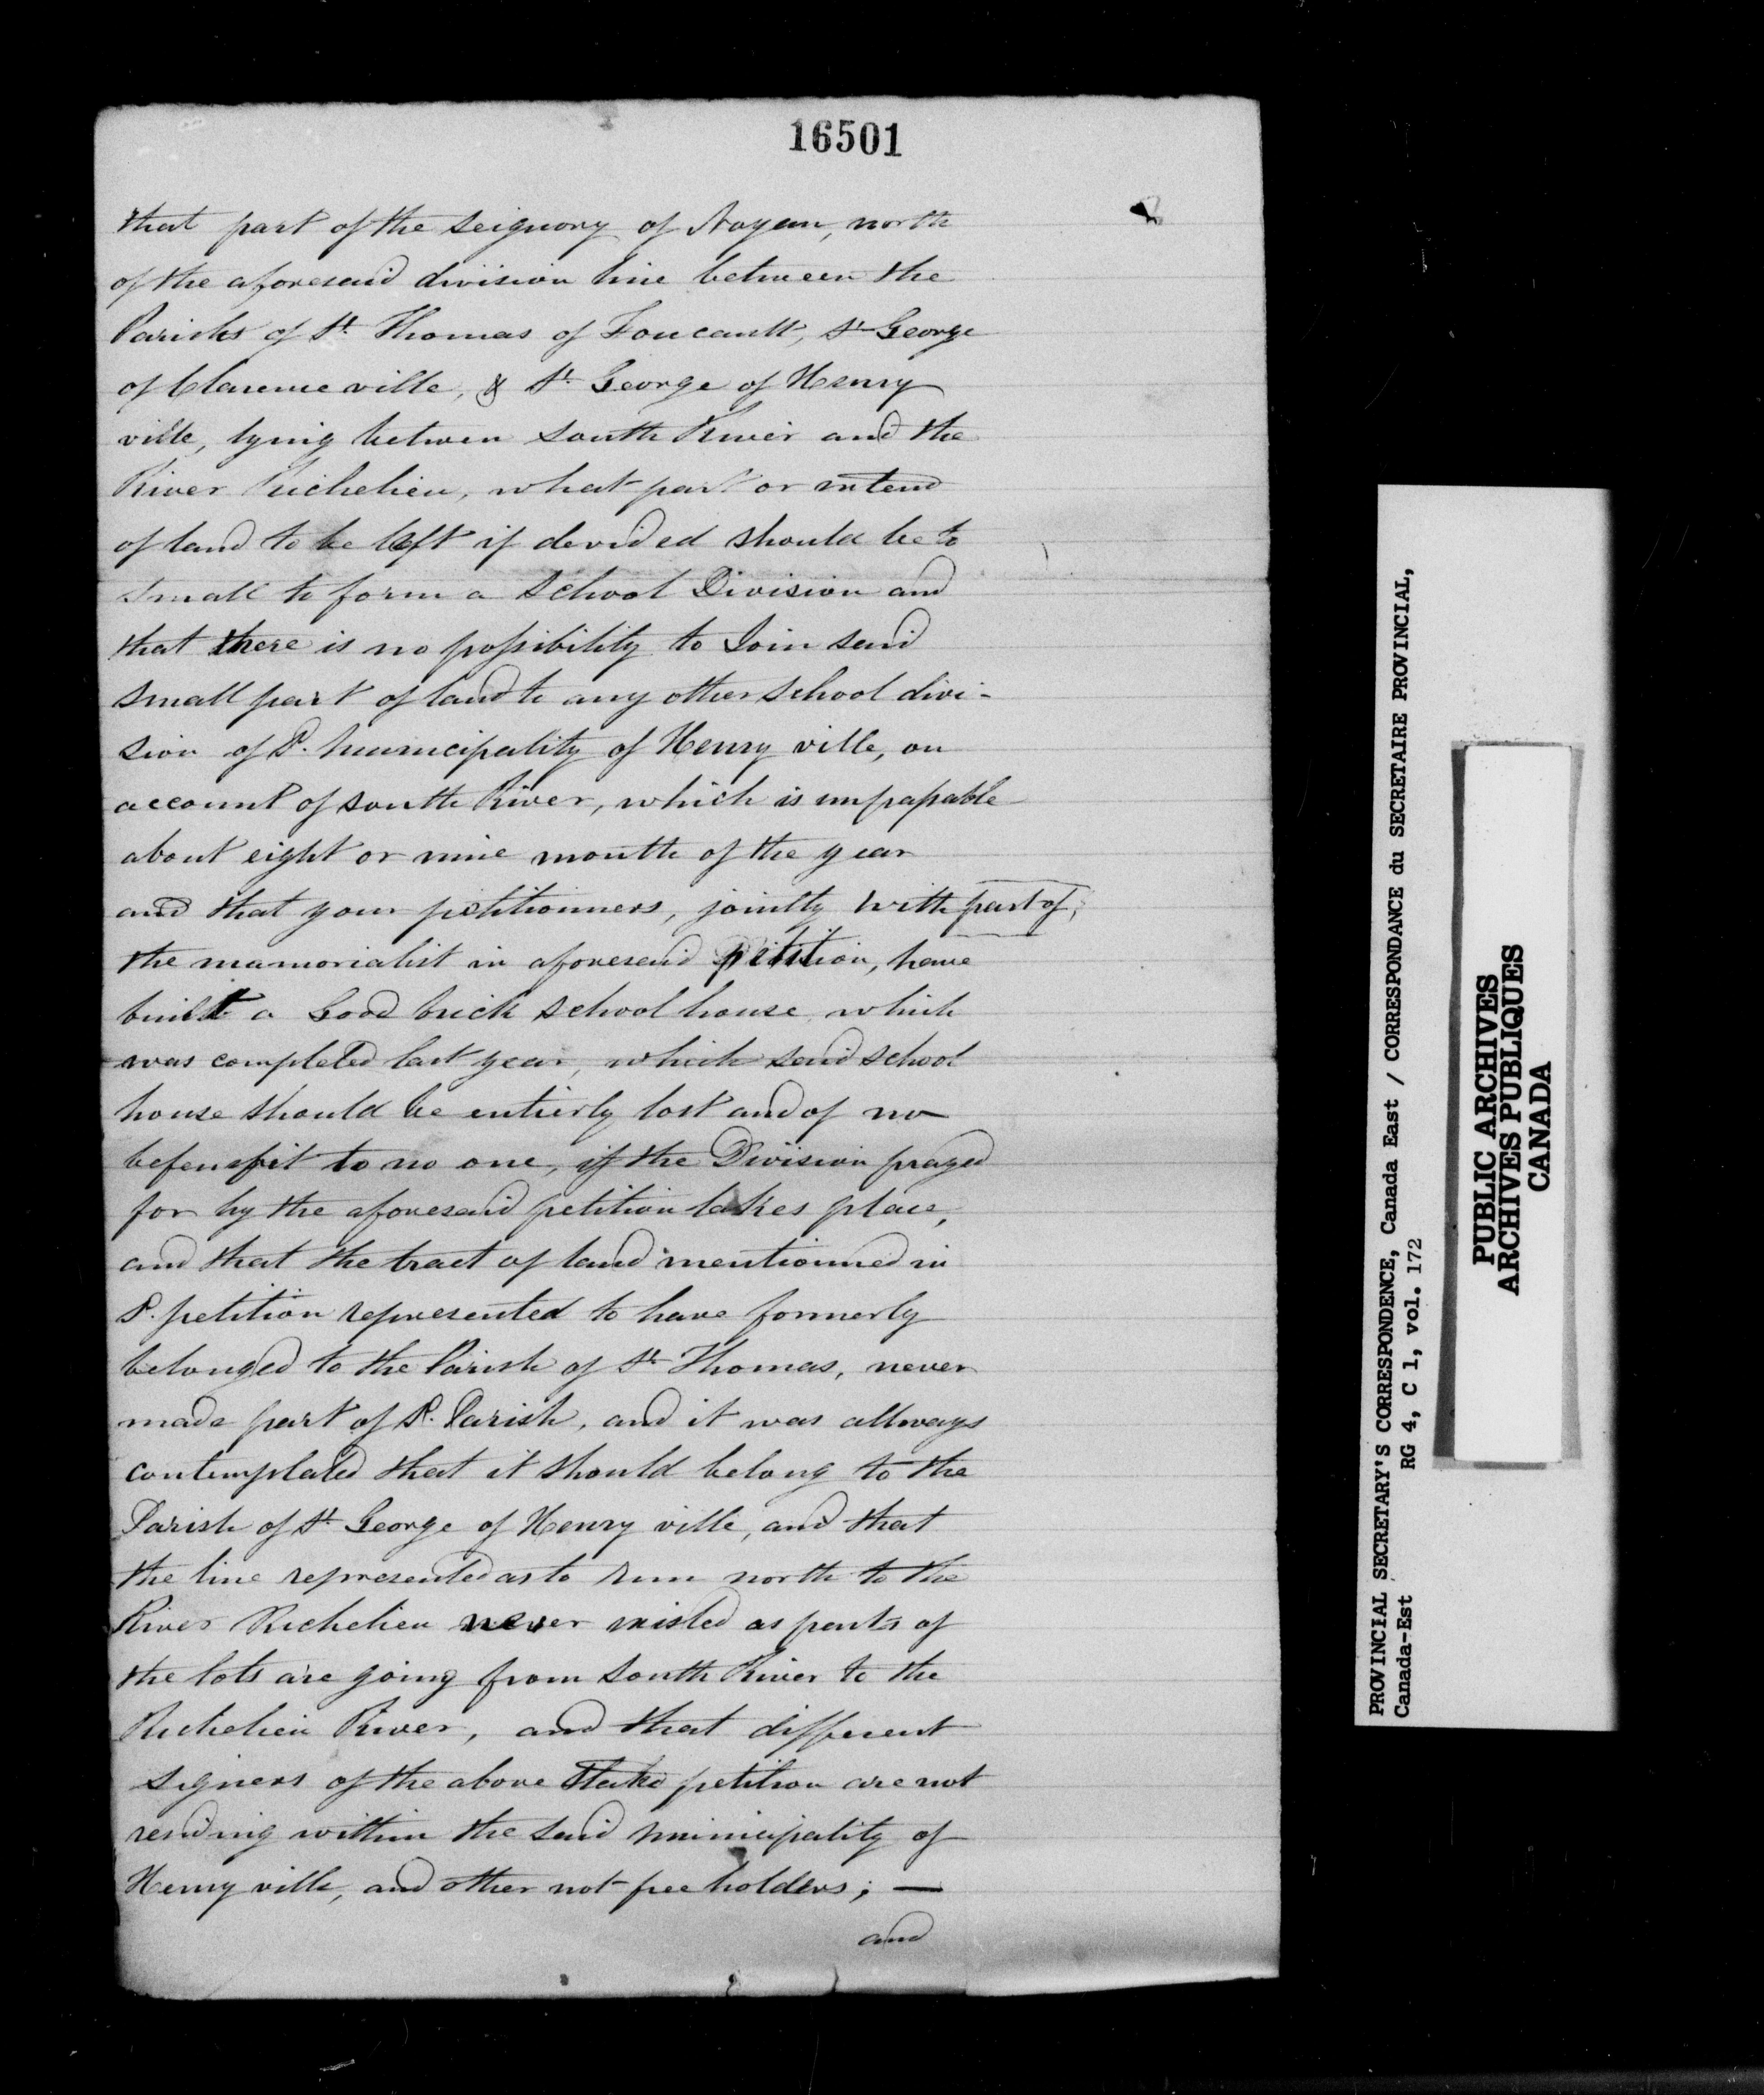 16501
that part of the seignory of Noyan, north
of the aforesaid division line between the
Parishs of St. Thomas of Foucault, St George
of Clarenceville, & St. George of Henry
ville, lying betwen South River and the
River Richelieu, what part or extend
of land to be left if devided should be to
small to form a School Division and
that there is no possibility to Join said
small part of land to any other School divi-
sion of Sd. municipality of Henry ville, on
account of South River, which is impassable
about eight or nine month of the year
and that your petitionners, jointly with part of,
the mamorialist in aforesaid petition, have
built a Good brick school house which
was completed last year, which said school
house should be entierly lost and of no
benefit to no one, if the Division prayed
for by the aforesaid petition takes place,
and that the tract of land mentionned in
Sd. petition represented to have formerly
belonged to the Parish of St. Thomas, never
made part of Sd. Parish, and it was allways
contemplated that it should belong to the
Parish of St. George of Henry ville, and that
the line represented as to run north to the
River Richelieu never existed as parts of
the lots are going from South River to the
Richelieu River, and that different
signers of the above stated petition are not
residing within the said municipality of
Henry ville, and other not free holders; —
and
PROVINCIAL SECRETARY'S CORRESPONDENCE, Canada East / CORRESPONDANCE du SECRETAIRE PROVINCIAL,
Canada-Est RG 4, C 1, vol. 172
PUBLIC ARCHIVES
ARCHIVES PUBLIQUES
CANADA